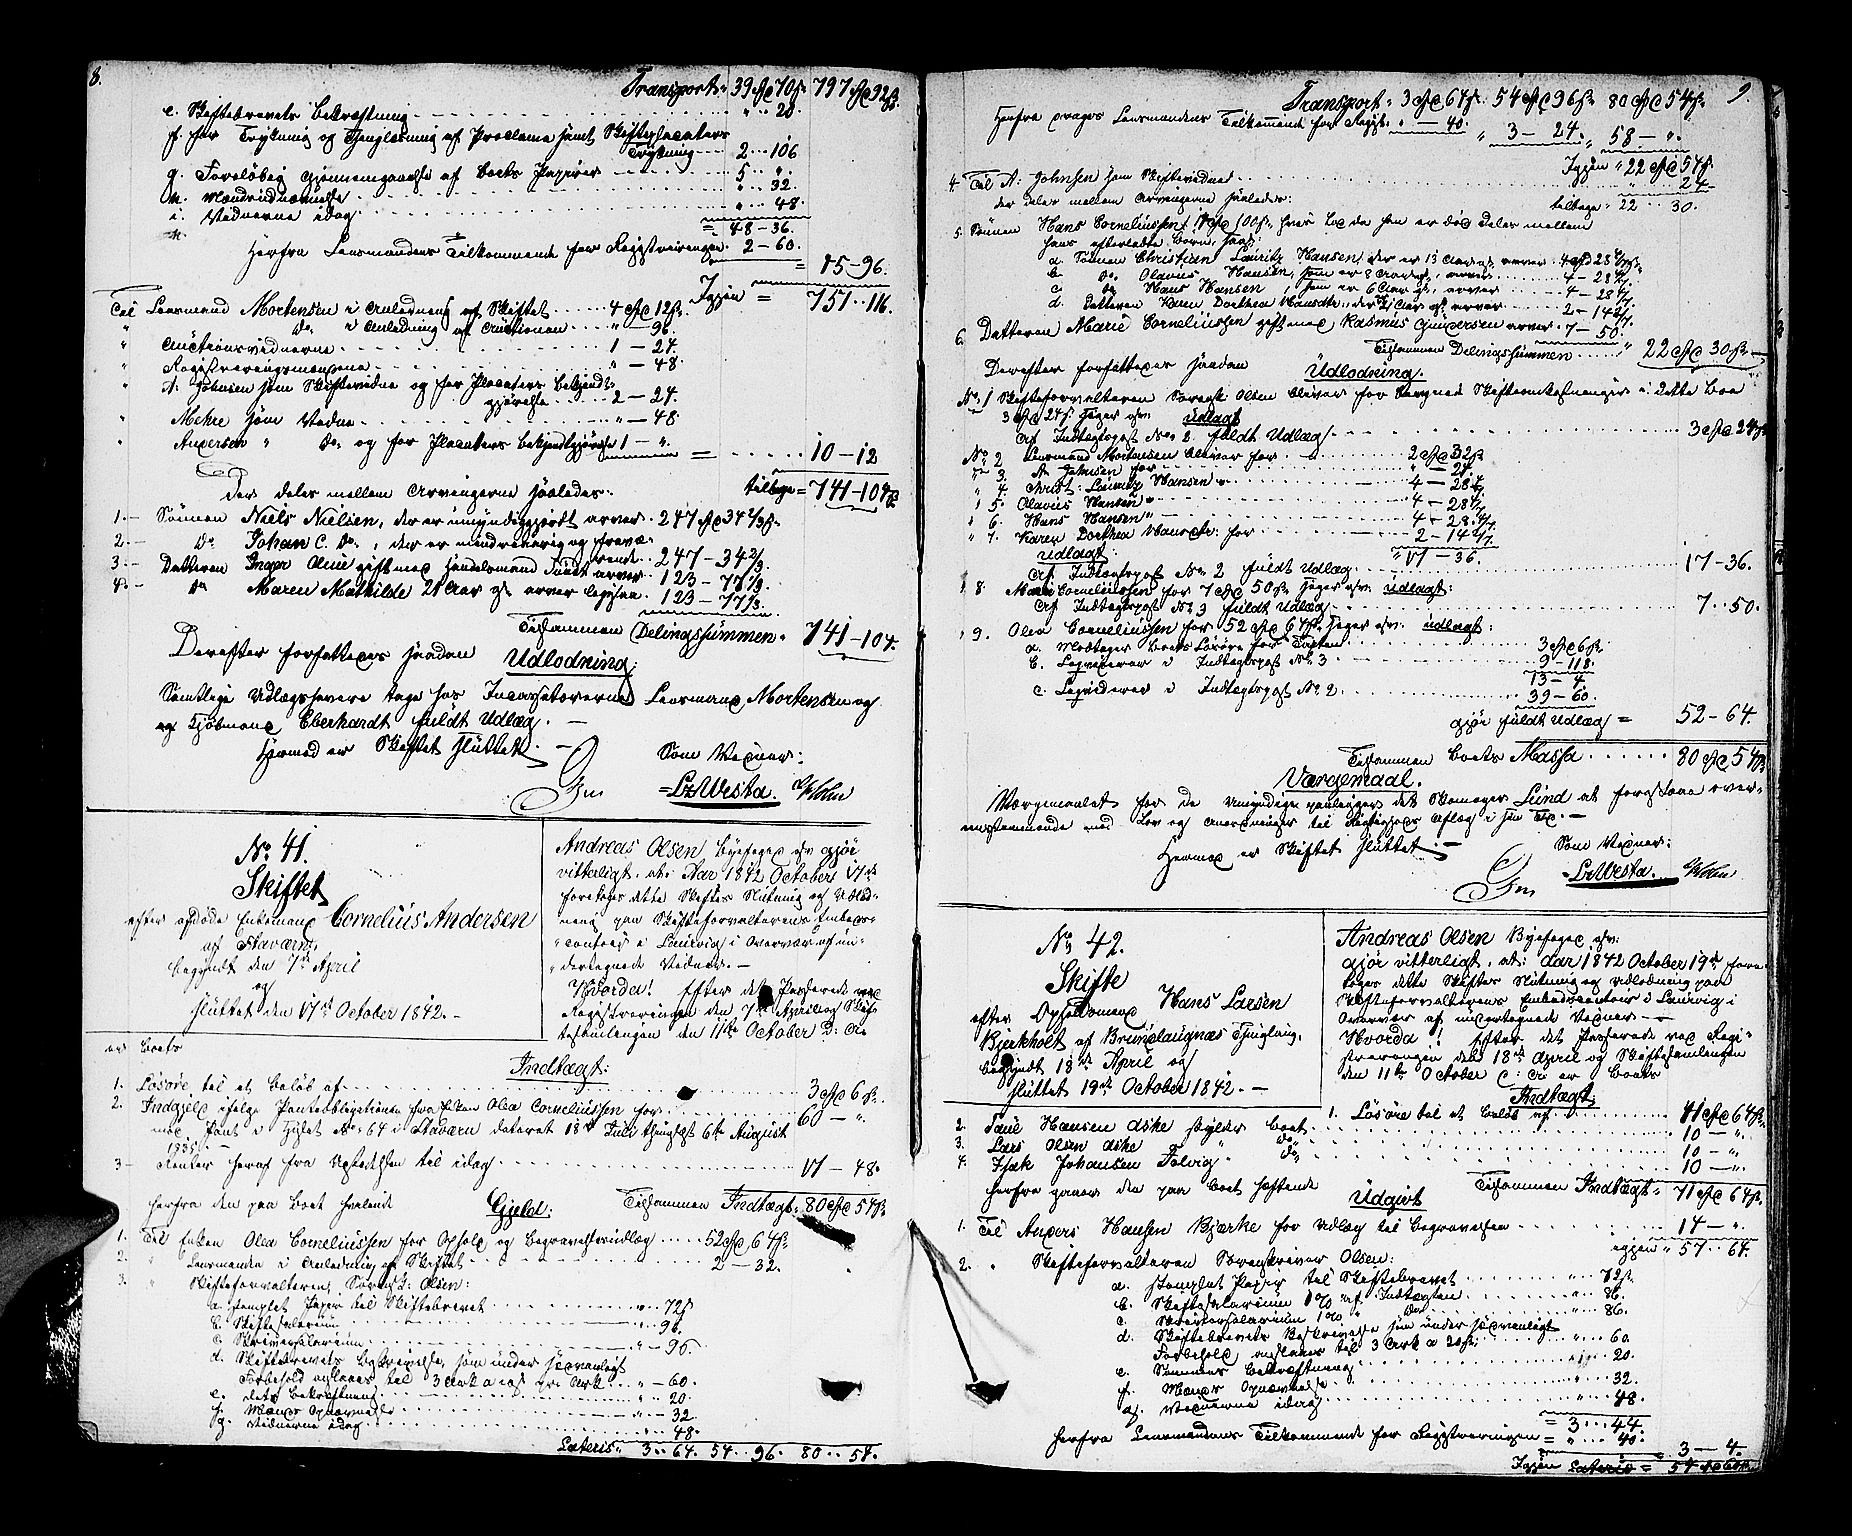 8.
Transport 39 Spd 70 s. 797 Spd 92 s.
e. Skiftebrevets Bekræftning " .. 20.
f. for Trykning og Thinglæsning af Proclama samt Skifteplacaters
Trykning 2 .. 106
g. Foreløbig Gjennemgaaelse af Boets Papirer 5 .. "
h. " .. 32.
i. Vidnerne idag " .. 48.
= 48 - 36.
Herfra Lensmandens Tilkommende for Registreringen 2 - 60.
= 45 - 96.
Igjen = 751 .. 116.
Til Lensmand Mortensen i Anledning af Skiftet 4 Spd 12 s.
" do i Anledning af Auctionen " - 96.
" Auctionsvidnerne 1 - 24.
" Registreringsmændene " - 48.
" A. Johnsen som Skiftevidne og for Placaters Bekjendt-
gjørelse 2 - 24.
" som Vidne " - 48
" Andersen " do og for Placaters Bekjendtgjørelse 1 - ". = 10 - 12
tilbage = 741 - 104 s
Der deles mellem Arvingerne saaledes:
1. - Sønnen Niels Nielsen, der er umyndiggjordt arver 247 Spd 34 2/3 s.
2. - do Johan C. do, der er mindreaarig og
247 - 34 2/3
3. - Datteren Inger Oline gift med Handelsmand arver 123 - 77 1/3.
4. - do Maren Mathilde 21 Aar gl. arver ligesaa 123 - 77 1/3.
Tilsammen Delingssummen 741 - 104.
Derefter forfattedes saadan Udlodning:
Samtlige Udlægshavere tage hos Incassatorerne Lensmand Mortensen og
og Kjøbmand Eberhardt fuldt Udlæg. -
Hermed er Skiftet sluttet. -
Som Vidner:
No 41.
Skiftet
efter afdøde Enkemand Cornelius Andersen
af Staværn,
begyndt den 7de April
og
sluttet den 17de October 1842. -
Andreas Olsen Byefoged gjør
vitterligt, at: Aar 1842 October 17de
foretoges dette Skiftes Slutning og Udlod-
ning paa Skifteforvalterens Embeds-
contoir i Laurvig i Overvær af un-
dertegnede Vidner. -
Hvorda! Efter det Passerede ved
Registreringen den 7de April og Skif-
tesamlingen den 11te October d: A:
er Boets
Indtægt:
1. Løsøre til et Beløb af 3 Spd 6 s.
2. Indgjeld ifølge Panteobligation fra Enken Olea Corneliussen for 60 - "
med Pant i Huset No 64 i Staværn dateret 18de Juli thinglyst 6te August
1835
3 - Renter heraf fra Udstedelsen til idag 17 - 48.
Tilsammen Indtægt 80 Spd 54 s.
herfra den paa Boet hvilende Gjeld:
1. Til Enken Olea Corneliussen for Ophold og Begravelsesudlæg 52 Spd 64 s.
2. " Lensmanden i Anledning af Skiftet 2 - 32.
3. " Skifteforvalteren, Sorenskr: Olsen:
a. stemplet Papir til Skiftebrevet " .. 72 s
b. Skiftesalarium " .. 96.
c. Skriversalarium " - 96.
d. Skiftebrevets Beskrivelse, som under sædvanligt
Forbehold ansættes til 3 Ark a 20 s pr. Ark " - 60.
e. dets Bekræftning " .. 20
f. Mænds Opnævnelse " - 32
g. Vidnerne idag " .. 48.
Lateris 3 .. 64. 54 .. 96. 80 .. 54.
9.
Transport 3 Spd 64 s. 54 Spd 96 s. 80 Spd 54 s.
Herfra drages Lensmandens Tilkommende for Registr. " - 40.
" 3 - 24. 58 - ".
Igjen " 22 Spd 54 s.
4. Til A. Johnsen som Skiftevidne 24 -
der deles mellem Arvingerne saaledes: tilbage " 22 .. 30.
5. Sønnen Hans Corneliussen, 14 Spd 100 s, hvis Lod da han er død deles mellem
hans efterladte Børn, saa:
a. Sønnen Christian Lauritz Hansen, der er 13 Aar gl. arver 4 Spd 28 4/7 s.
b. do Olavus Hansen, som er 8 Aar gl., arver 4 - 28 4/7.
c do Hans Hansen, som er 6 Aar gl., arver 4 - 28 4/7.
d. Datteren Karen Dorthea Hansdtr, der er Aar gl. arver 2 - 14 2/7.
6. Datteren Marie Corneliussen gift med Rasmus Gundersen arver 7 - 50.
Tilsammen Delingssummen " 22 Spd 30 s.
Derefter forfattedes saadan Udlodning.
No 1 Skifteforvalteren Sorenskr. Olsen bliver for beregnede Skifteomkostninger i dette Boe
3 Spd 24 s. søger udlagt
Af Indtægtspost No 2 fuldt Udlæg 3 Spd 24 s
No 2 Lensmand Mortensen bliver for 2 Spd 32 s
" 3. A. Johnsen for " - 24.
" 4. Christ: Lauritz Hansen " 4 - 28 4/7
" 5. Olavus Hansen " 4 - 28 4/7
" 6. Hans Hansen " 4 - 28 4/7.
" 7. Karen Dorthea Hansdtr: for 2 - 14 2/7
udlagt: " 17 - 36.
Af Indtægtspost No 2 fuldt Udlæg 17 - 36.
" 8. Marie Corneliussen for 7 Spd 50 s. søger udlagt:
Af Indtægtspost No 3 fuldt Udlæg 7 .. 50.
" 9. Olea Corneliussen for 52 Spd 64 s. søger udlagt:
a. Modtager Boets Løsøre for Taxten 3 Spd 6 s.
b. Leqviderer i Indtægtspost No 3 9 - 118.
13 - 4
c. Leqviderer i Indtægtspost No 2 39 - 60.
gjør fuldt Udlæg = 52 - 64.
Tilsammen Boets Massa 80 Spd 54 s
Værgemaal.
Værgemaalet for de Umyndige paalægges det Skomager Lund at forestaae over-
ensstemmende med Lov og Anordninger til Regnskabs Aflæg i sin Tid. -
Hermed er Skiftet sluttet. -
Som Vidner:
No 42.
Skifte
efter Opholdsmand Hans Larsen
Bjerkholt af Brunlaugnæs Thinglaug,
begyndt 18de April og
sluttet 19de October 1842. -
Andreas Olsen Byefoged
gjør vitterligt, at: Aar 1842 October 19de fore-
toges dette Skiftes Slutning og Udlodning paa
Skifteforvalterens Embedscontoir i Laurvig i
Overvær af undertegnede Vidner -
Hvorda! Efter det Passerede ved Regi-
streringen den 18de April og Skiftesamlingen
den 11te October d: A: er Boets
Indtægt:
1. Løsøre til et Beløb af 41 Spd 64 s.
2. Hansen Aske skylder Boet 10 - ".
3. Lars Olsen Aske " do 10 - "
4. Isak Johansen Tolvig " do 10 - ".
Tilsammen Indtægt 71 Spd 64 s.
herfra gaaer den paa Boet hæftende Udgivt
1. Til Anders Hansen Bjørke for Udlæg til Begravelsen 14 - ".
igjen " 57 .. 64.
2. " Skifteforvalteren Sorenskriver Olsen:
a. stemplet Papir til Skiftebrevet " .. 72 s.
b. Skiftesalarium 1 % af Indtægten " .. 86.
c Skriversalarium 1 % " do " .. 86.
d. Skiftebrevets Beskrivelse som under sædvanligt
Forbehold ansættes til 3 Ark a 20 s. " .. 60.
e. Sammes Bekræftning " .. 20.
f. Mænds Opnævnelse " .. 32
g. Vidnerne idag " .. 48.
= 3 .. 44.
herfra Lensmandens Tilkommende for Registreringen = " .. 40.
3 - 4.
Igjen Lateris = 54 Spd 60 s